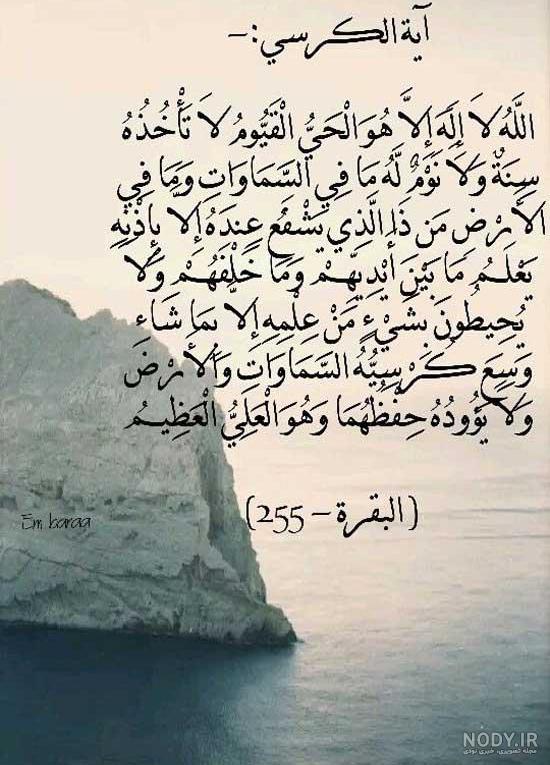 آية الكرسي:-
اللَّهُ لاَ إِلَهَ إِلاَّ هُوَ الْحَيُّ الْقَيُّومُ لاَ تَأْخُذُهُ
سِنَةٌ وَلاَ نَوْمٌ لَّهُ مَا فِي السَّمَاوَاتِ وَمَا فِي
الأَرْضِ مَن ذَا الَّذِي يَشْفَعُ عِنْدَهُ إِلاَّ بِإِذْنِهِ
يَعْلَمُ مَا بَيْنَ أَيْدِيهِمْ وَمَا خَلْفَهُمْ وَلاَ
يُحِيطُونَ بِشَيْءٍ مِّنْ عِلْمِهِ إِلاَّ بِمَا شَاء
وَسِعَ كُرْسِيُّهُ السَّمَاوَاتِ وَالأَرْضَ
وَلاَ يَؤُودُهُ حِفْظُهُمَا وَهُوَ الْعَلِيُّ الْعَظِيمُ
(البقرة - 255)
Em baraa
NODY.IR
مجله تصویری، خبری نودی